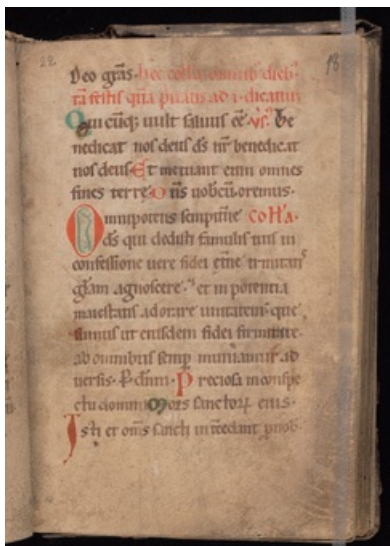 22
18
Deo grãs. hec collõ omnibꝰ diebꝫ
tã festis quã puatis ad i dicatur
Qui cũq; uult saluus eẽ vsꝰ. be
nedicat nos deus ds nr̃ benedicat
nos deus Et metuant eum omnes
fines terre Dñs uobcũ. oremus.
Omnipotens sempitne Coll̃a.
ds qui dedisti famulis tuis in
confessione uere fidei etne trinitatꝭ
gl̃am agnoscere. et in potentia
maiestatis adorare unitatem que
sumus ut eiusdem fidei firmitate.
ab omnibus semp muniamur ad
uersis. P dñm. Preciosa in conspe
ctu domini Mors sanctoꝝ eius.
Isti et oms̃ sancti in tcedant ꝓnob.